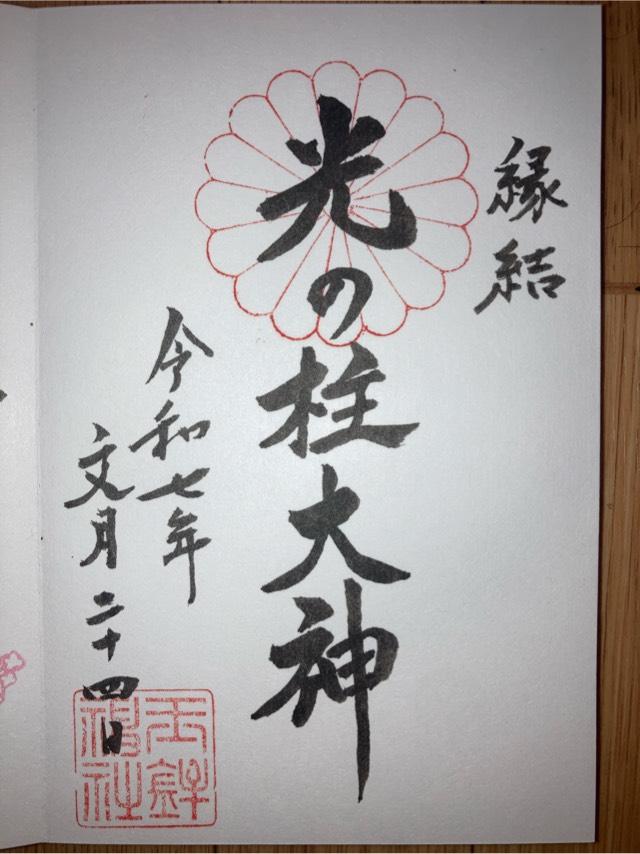 縁結
光の柱大神
令和七年
文月二十四日
玉鉾
神社